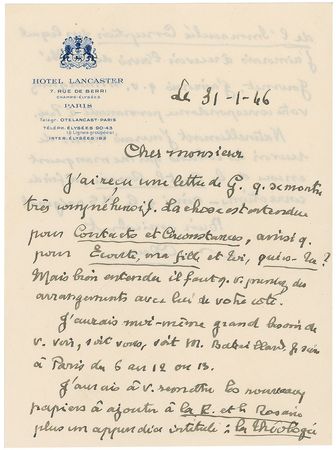 HOTEL LANCASTER
7, RUE DE BERRI
CHAMPS-ÉLYSÉES
PARIS
Télégr. OTELANCAST-PARIS
TÉLÉPH. ÉLYSÉES 90-43
(5 lignes groupées)
INTER. ÉLYSÉES 192
Le 31-1-46
Cher monsieur
J'ai reçu une lettre de G. q. se montre
très compréhensif. La chose est entendue
pour Contacts et Circonstances, ainsi q.
pour Écoute, ma fille et Toi, qui es-Tu ?
Mais bien entendu il faut q. v. preniez des
arrangements avec lui de votre côté.
J'aurais moi-même grand besoin de
v. voir, soit vous, soit M. Je serai
à Paris du 6 au 12 ou 13.
J'aurai à v. remettre les nouveaux
papiers à ajouter à la R. et le Rosaire
plus un appendice intitulé : la théologie